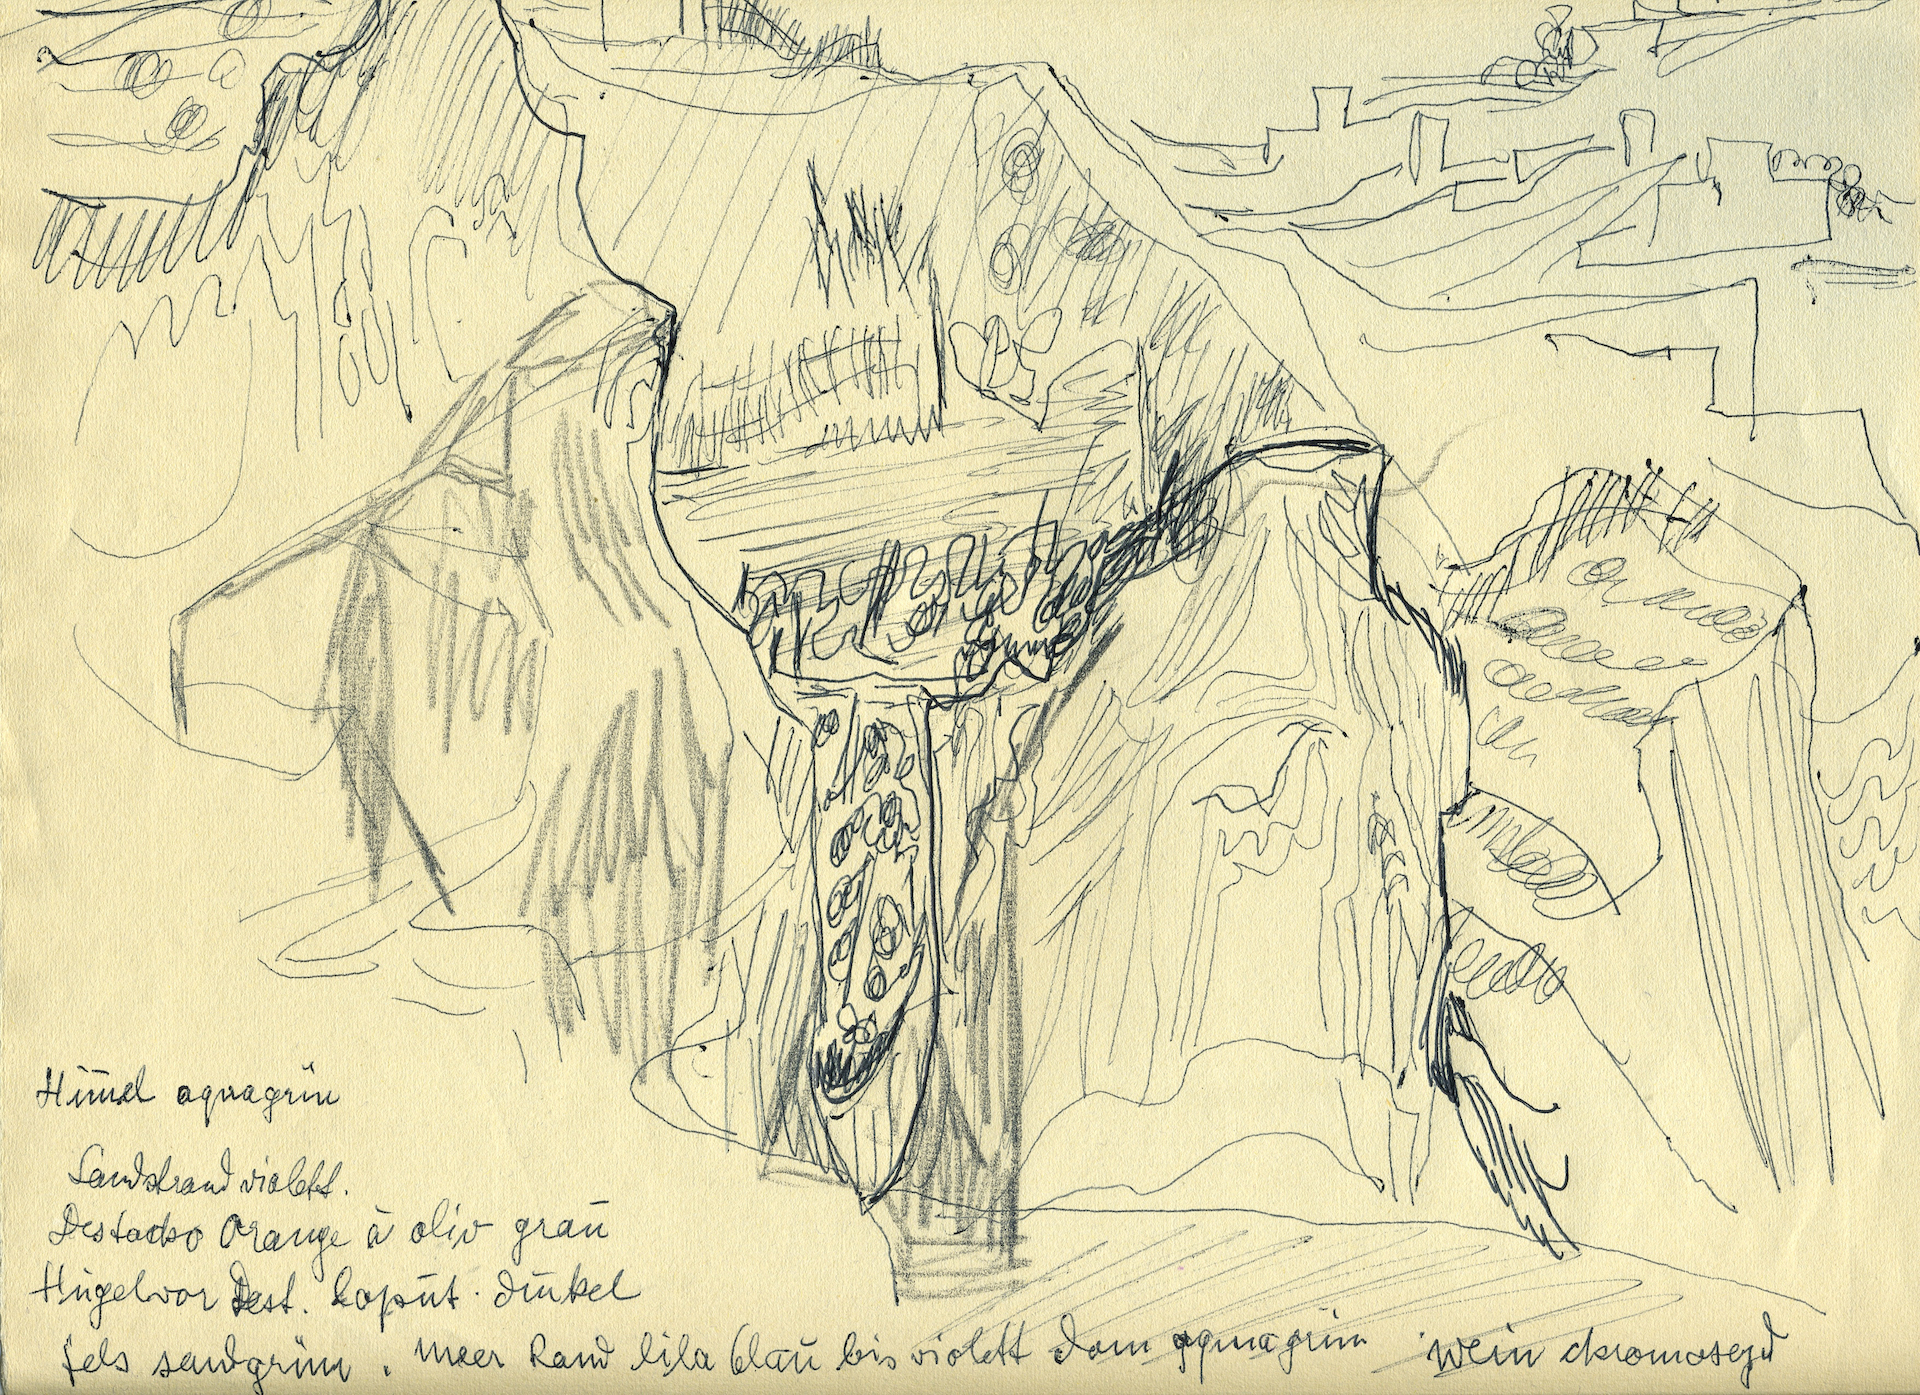 Him̄el aquagrün
Sandstrand violett.
Destacko Orange à oliv graŭ
Hügel vor Dest. Kapŭt. dŭnkel
fels sandgrün. Meer Rand lila blaŭ bis violett dann aquagrün Wein chromoxyd